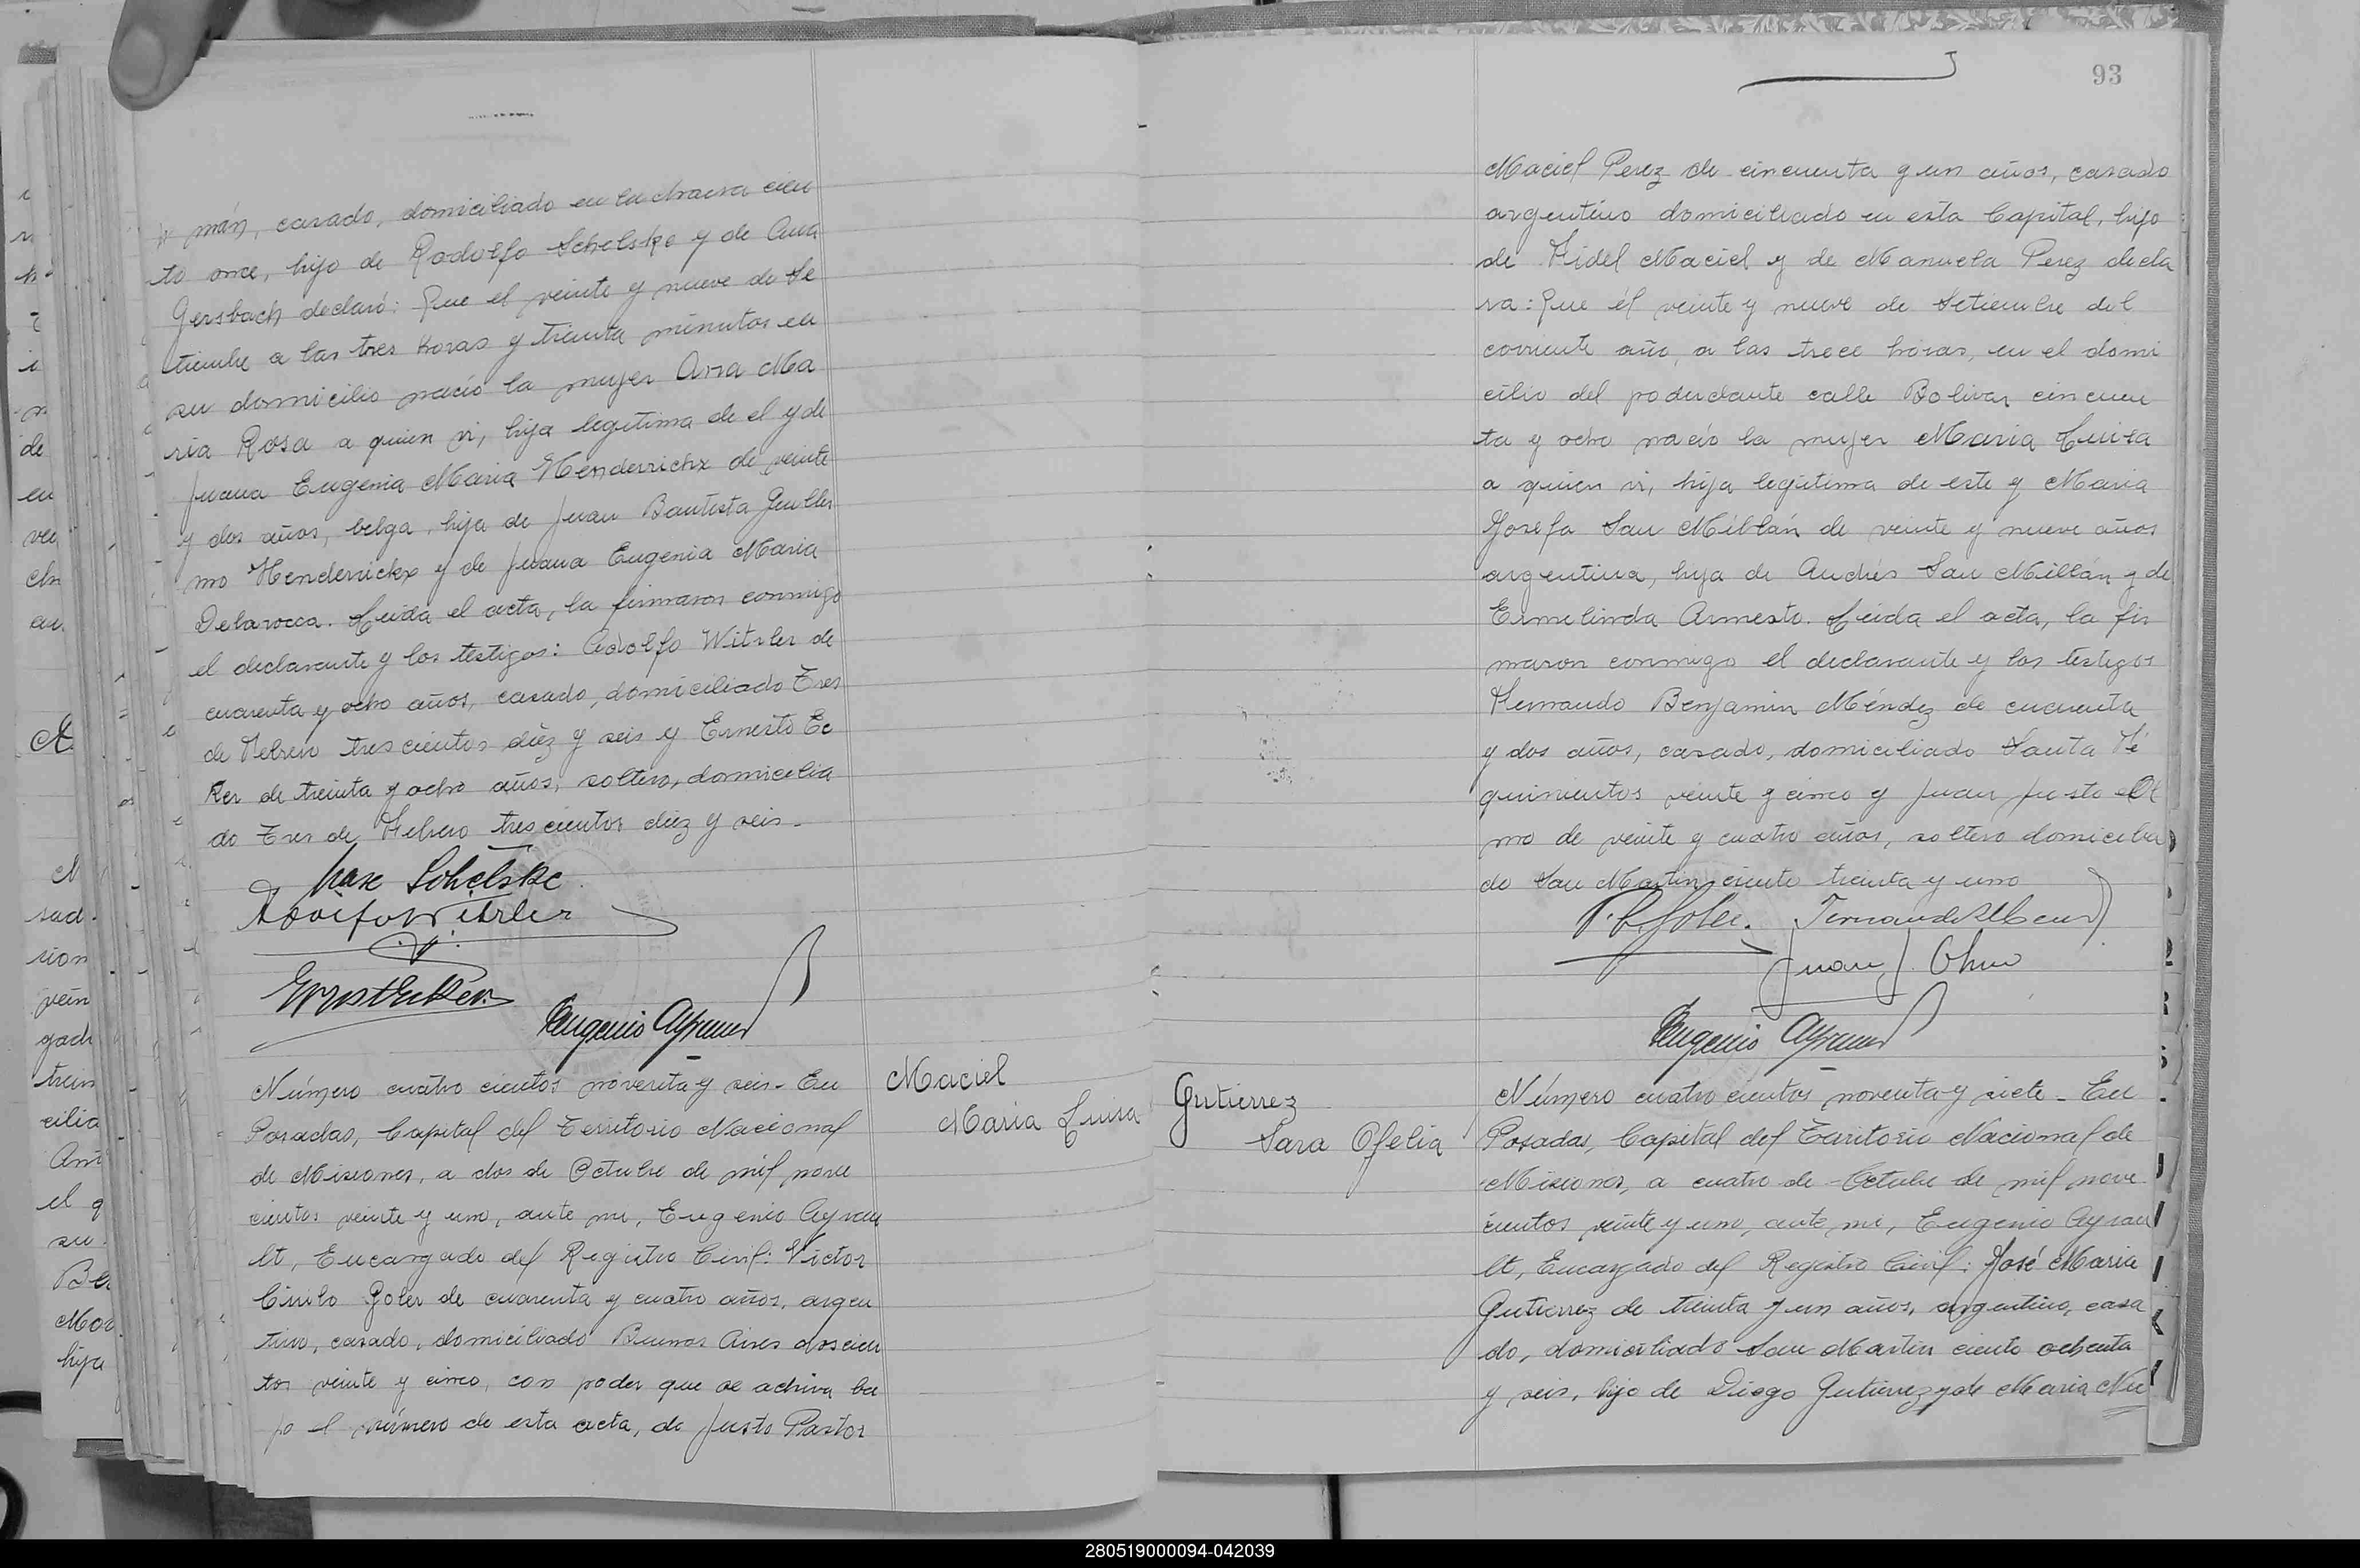 mán, casado, domiciliado en la chacra cien
to once, hijo de Rodolfo Schelske y de Ana
Gersbach declaró: Que el veinte y nueve de Se
tiembre a las tres horas y treinta minutos en
su domicilio nació la mujer Ana Ma
ria Rosa a quien vi, hija legitima de el y de
Juana Eugenia Maria Henderrichx de veinte
y dos años, belga, hija de Juan Bautista Guiller
mo Henderrickx y de Juana Eugenia Maria
Delarocca. Leida el acta, la firmaron conmigo
el declarante y los testigos: Adolfo Witzler de
cuarenta y ocho años, casado, domiciliado Tres
de Febrero trescientos diez y seis y Ernesto Ec
Ker de treinta y ocho años, soltero, domicilia
do Tres de Febrero trescientos diez y seis.
Max Schelske
Adolfo Witzler
Eugenio Ayrault
Número cuatro cientos noventa y seis - En
Posadas, Capital del Territorio Nacional
de Misiones, a dos de Octubre de mil nove
cientos veinte y uno, ante mi, Eugenio Ayrau
lt, Encargado del Registro Civil: Victor
Cirilo Goler de cuarenta y cuatro años, argen
tino, casado, domiciliado Buenos Aires doscien
tos veinte y cinco, con poder que se achiva ba
jo el número de esta acta, de Justo Pastor
Maciel
Maria Luisa
93
Maciel Perez de cincuenta y un años, casado
argentino domiciliado en esta Capital, hijo
de Fidel Maciel y de Manuela Perez decla
ra: Que él veinte y nueve de Setiembre del
corriente año, a las trece horas, en el domi
cilio del poderdante calle Bolivar cincuen
ta y ocho nació la mujer Maria Luisa
a quien vi, hija legitima de este y Maria
Josefa San Millán de veinte y nueve años
argentina, hija de Andrés San Millán y de
Ermelinda Armesto. Leida el acta, la fir
maron conmigo el declarante y los testigos
Fernando Benjamin Méndez de cuarenta
y dos años, casado, domiciliado Santa Fé
quinientos veinte y cinco y Juan Justo Ol
mo de veinte y cuatro años, soltero domicilia
do San Martin ciento treinta y uno
Juan J. Olmo
Eugenio Ayrault
Gutierrez
Sara Ofelia
Número cuatro cientos noventa y siete - En
Posadas, Capital del Territorio Nacional de
Misiones, a cuatro de Octubre de mil nove
cientos veinte y uno, ante mi, Eugenio Ayrau
lt, Encargado del Registro Civil: José Maria
Gutierrez de treinta y un años, argentino, casa
do, domiciliado San Martin ciento ochenta
y seis, hijo de Diego Gutierrez y de Maria Nu
280519000094-042039